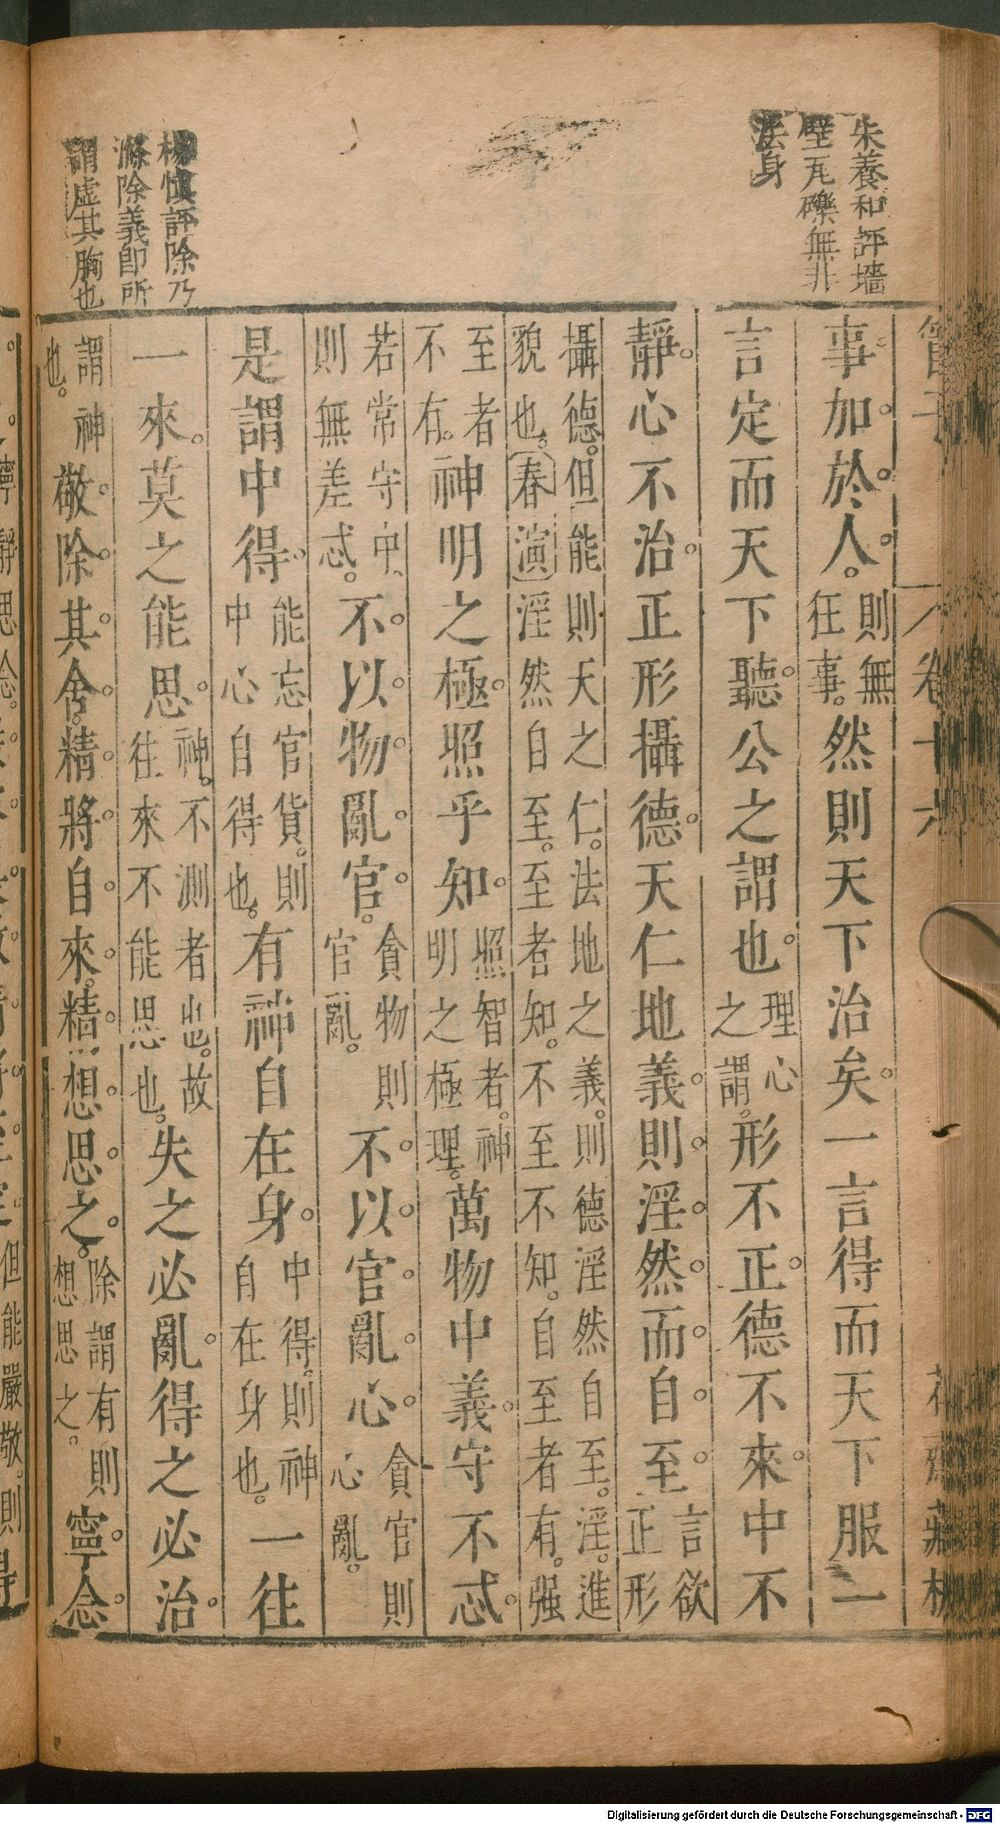 朱養和評墻
壁瓦礫無非
法身
楊慎評除乃
滌除義即所
謂虛其胸也
管子 卷十六 花齋藏板
事加於人。則無狂事。然則天下治矣。一言得而天下服一
言定而天下聽。公之謂也。理心之謂。形不正。德不來。中不
靜。心不治。正形攝德。天仁地義。則淫然而自至。言欲正形
攝德。但能則天之仁。法地之義。則德淫然自至。淫。進貌也。春演淫然自至。至者知。不至不知。自至者有。强
至者不有。神明之極。照乎知。照智者。神明之極理。萬物中義。守不忒。
若常守中、則無差忒。不以物亂官。貪物則官亂。不以官亂心。貪官則心亂。
是謂中得。能忘官貨。則中心自得也。有神自在身。中得。則神自在身也。一往
一來。莫之能思。神。不測者也。故往來不能思也。失之必亂。得之必治。
謂神也。敬除其舍。精將自來。精想思之。除謂有則想思之。寧念
但能嚴敬。則得
Digitalisierung gefördert durch die Deutsche Forschungsgemeinschaft - DFG